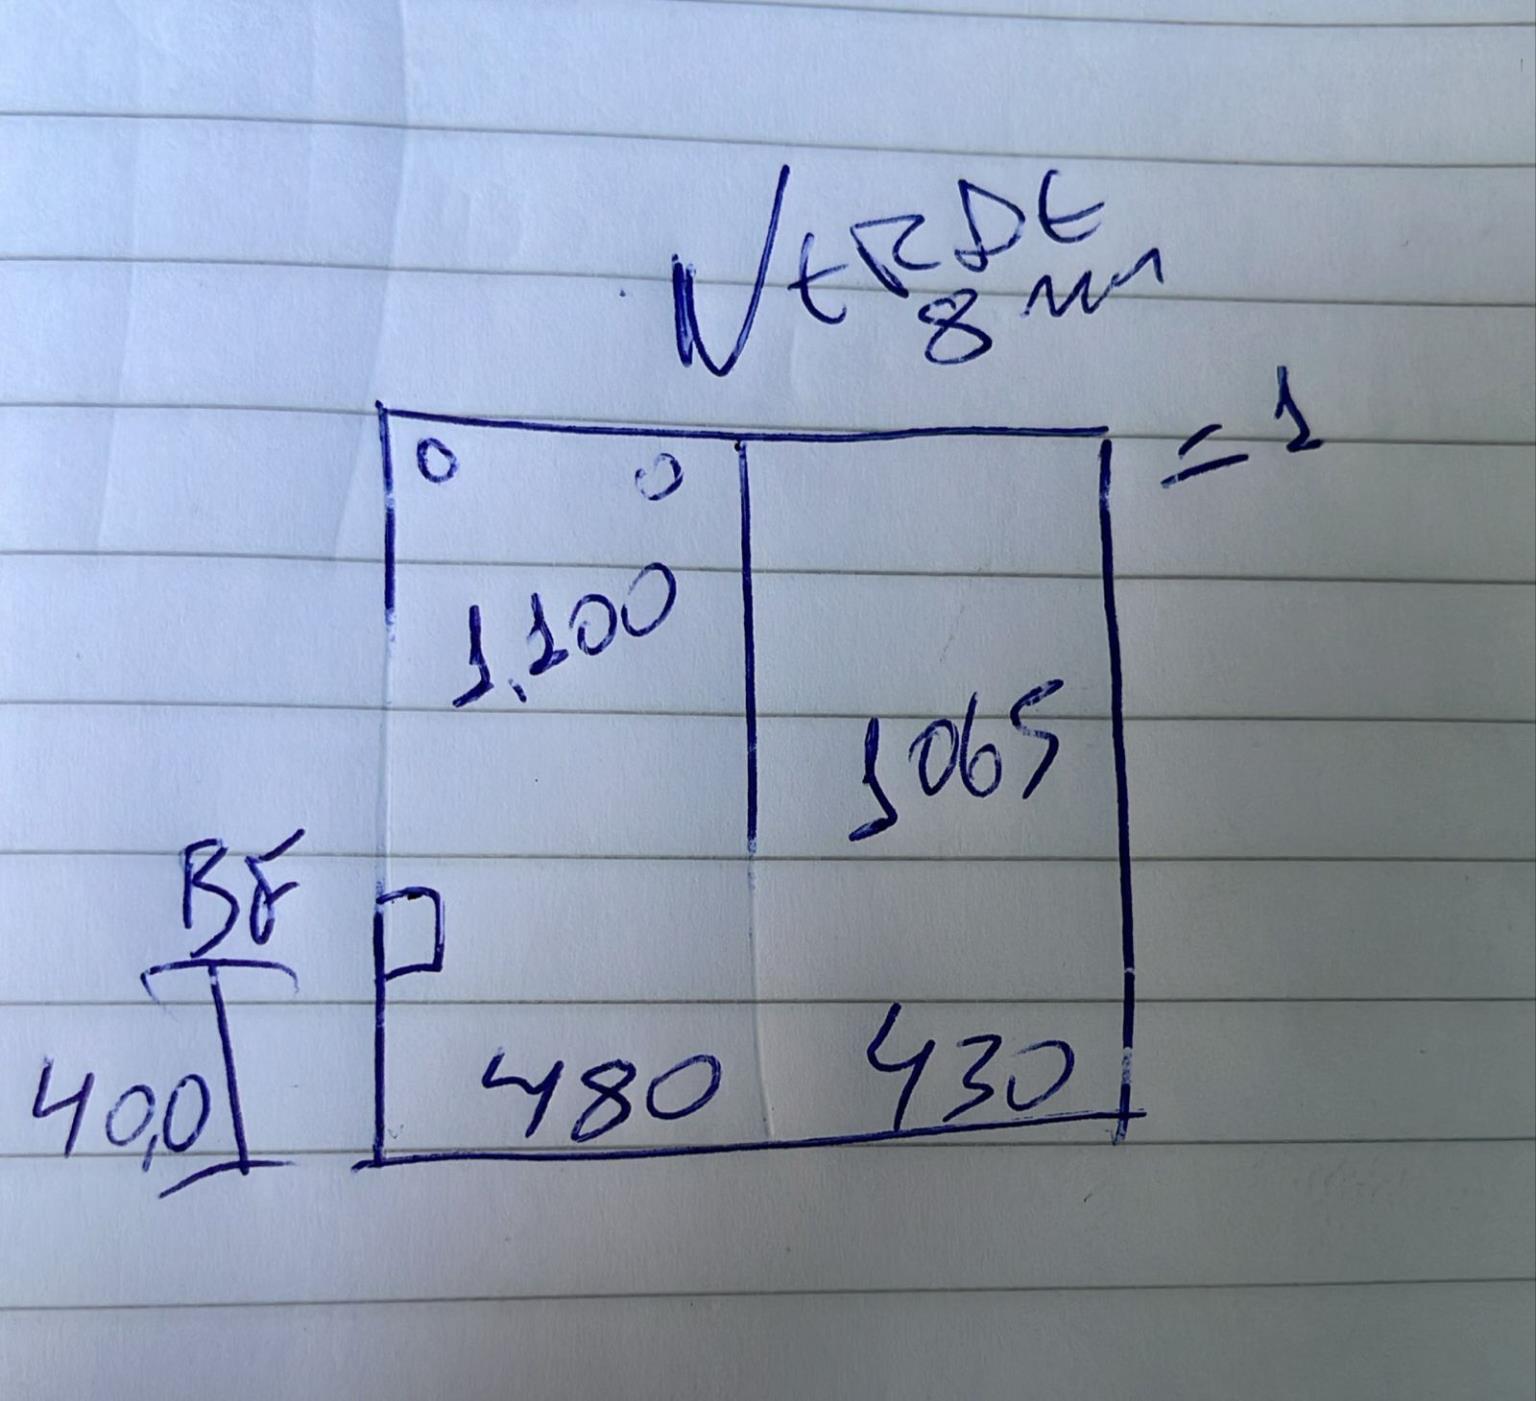 VERDE
8 mm
= 1
1,100
1065
BF
40,0
480
430